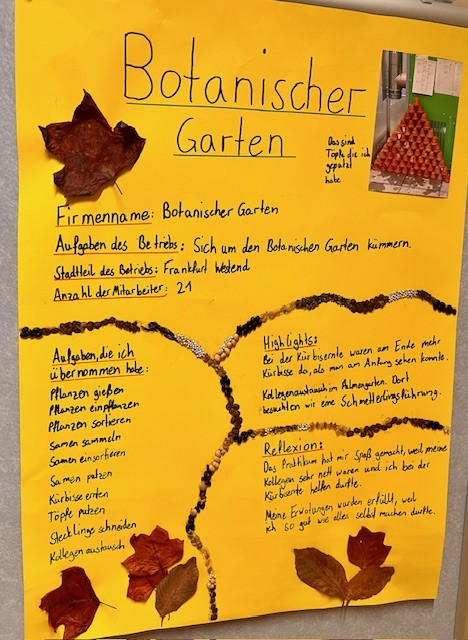 Botanischer
Garten
Das sind
Töpfe die ich
geputzt
habe
Firmenname: Botanischer Garten
Aufgaben des Betriebs: Sich um den Botanischen Garten kümmern.
Stadtteil des Betriebs: Frankfurt Westend
Anzahl der Mitarbeiter: 21
Aufgaben, die ich
übernommen habe:
Pflanzen gießen
Pflanzen einpflanzen
Pflanzen sortieren
Samen sammeln
Samen einsortieren
Samen putzen
Kürbisse ernten
Töpfe putzen
Stecklinge schneiden
Kollegenaustausch
Highlights:
Bei der Kürbisernte waren am Ende mehr
Kürbisse da, als man am Anfang sehen konnte.
Kollegenaustausch im Palmengarten. Dort
besuchten wir eine Schmetterlingsführung.
Reflexion:
Das Praktikum hat mir Spaß gemacht, weil meine
Kollegen sehr nett waren und ich bei der
Kürbisernte helfen durfte.
Meine Erwartungen wurden erfüllt, weil
ich so gut wie alles selbst machen durfte.